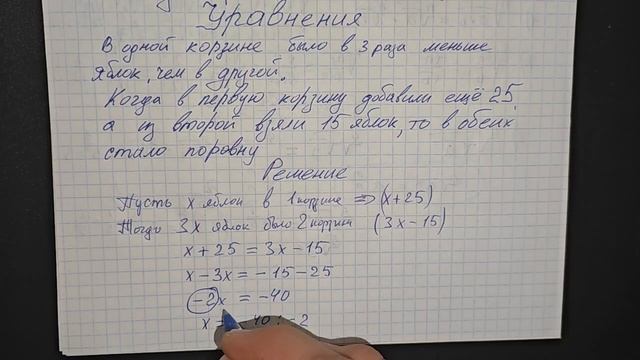 Уравнения
В одной корзине было в 3 раза меньше
яблок, чем в другой.
Когда в первую корзину добавили ещё 25,
а из второй взяли 15 яблок, то в обеих
стало поровну
Решение
Пусть x яблок в 1 корзине ⇒ (x+25)
Тогда 3x яблок было 2 корзине (3x-15)
x + 25 = 3x - 15
x - 3x = -15 - 25
-2x = -40
x 40 : -2